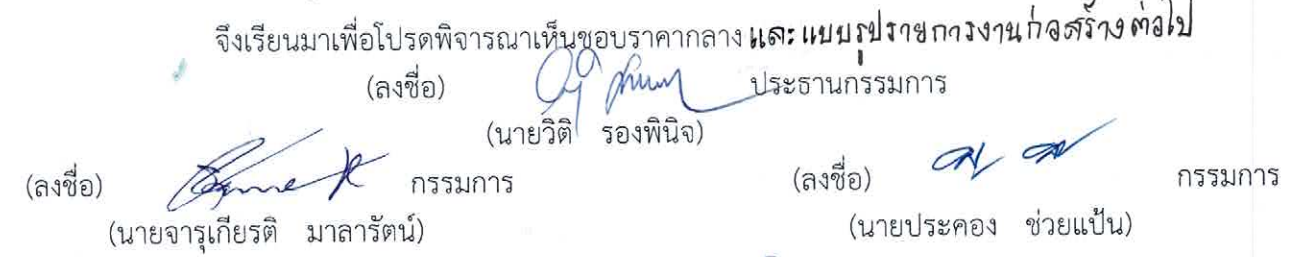 จึงเรียนมาเพื่อโปรดพิจารณาเห็นชอบราคากลาง และแบบรูปรายการงานก่อสร้างต่อไป
(ลงชื่อ) ประธานกรรมการ
(นายวิติ รองพินิจ)
(ลงชื่อ) กรรมการ (ลงชื่อ) กรรมการ
(นายจารุเกียรติ มาลารัตน์) (นายประคอง ช่วยแป้น)